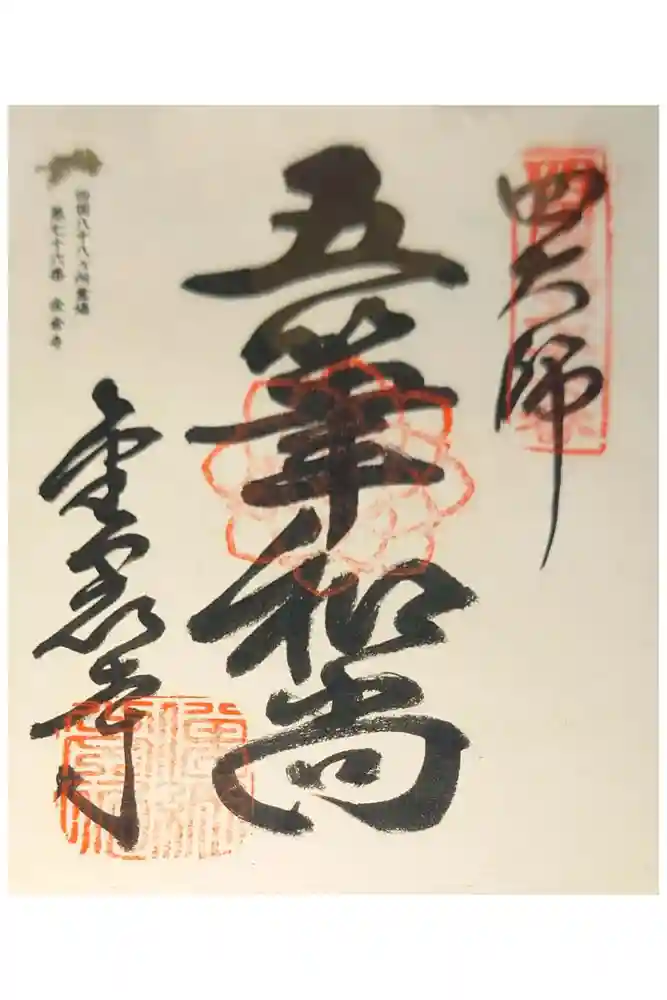 四大師
五筆和尚
金倉寺
四国八十八ヶ所霊場
第七十六番 金倉寺